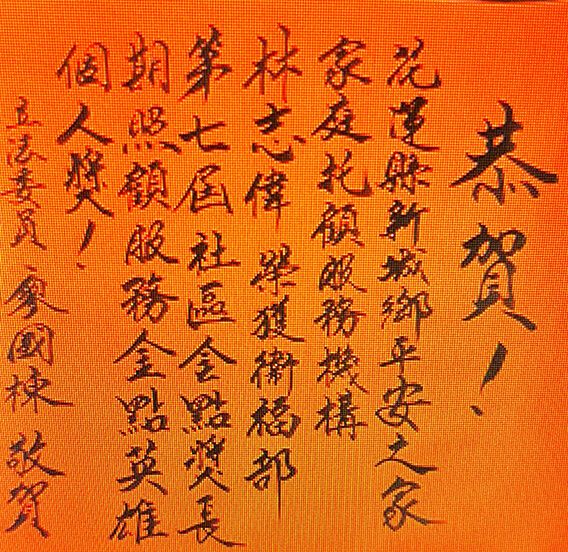 恭賀！
花蓮縣新城鄉平安之家
家庭托顧服務機構
林志偉 榮獲衛福部
第七屆社區金點獎長
期照顧服務金點英雄
個人獎！
立法委員 廖國棟 敬賀